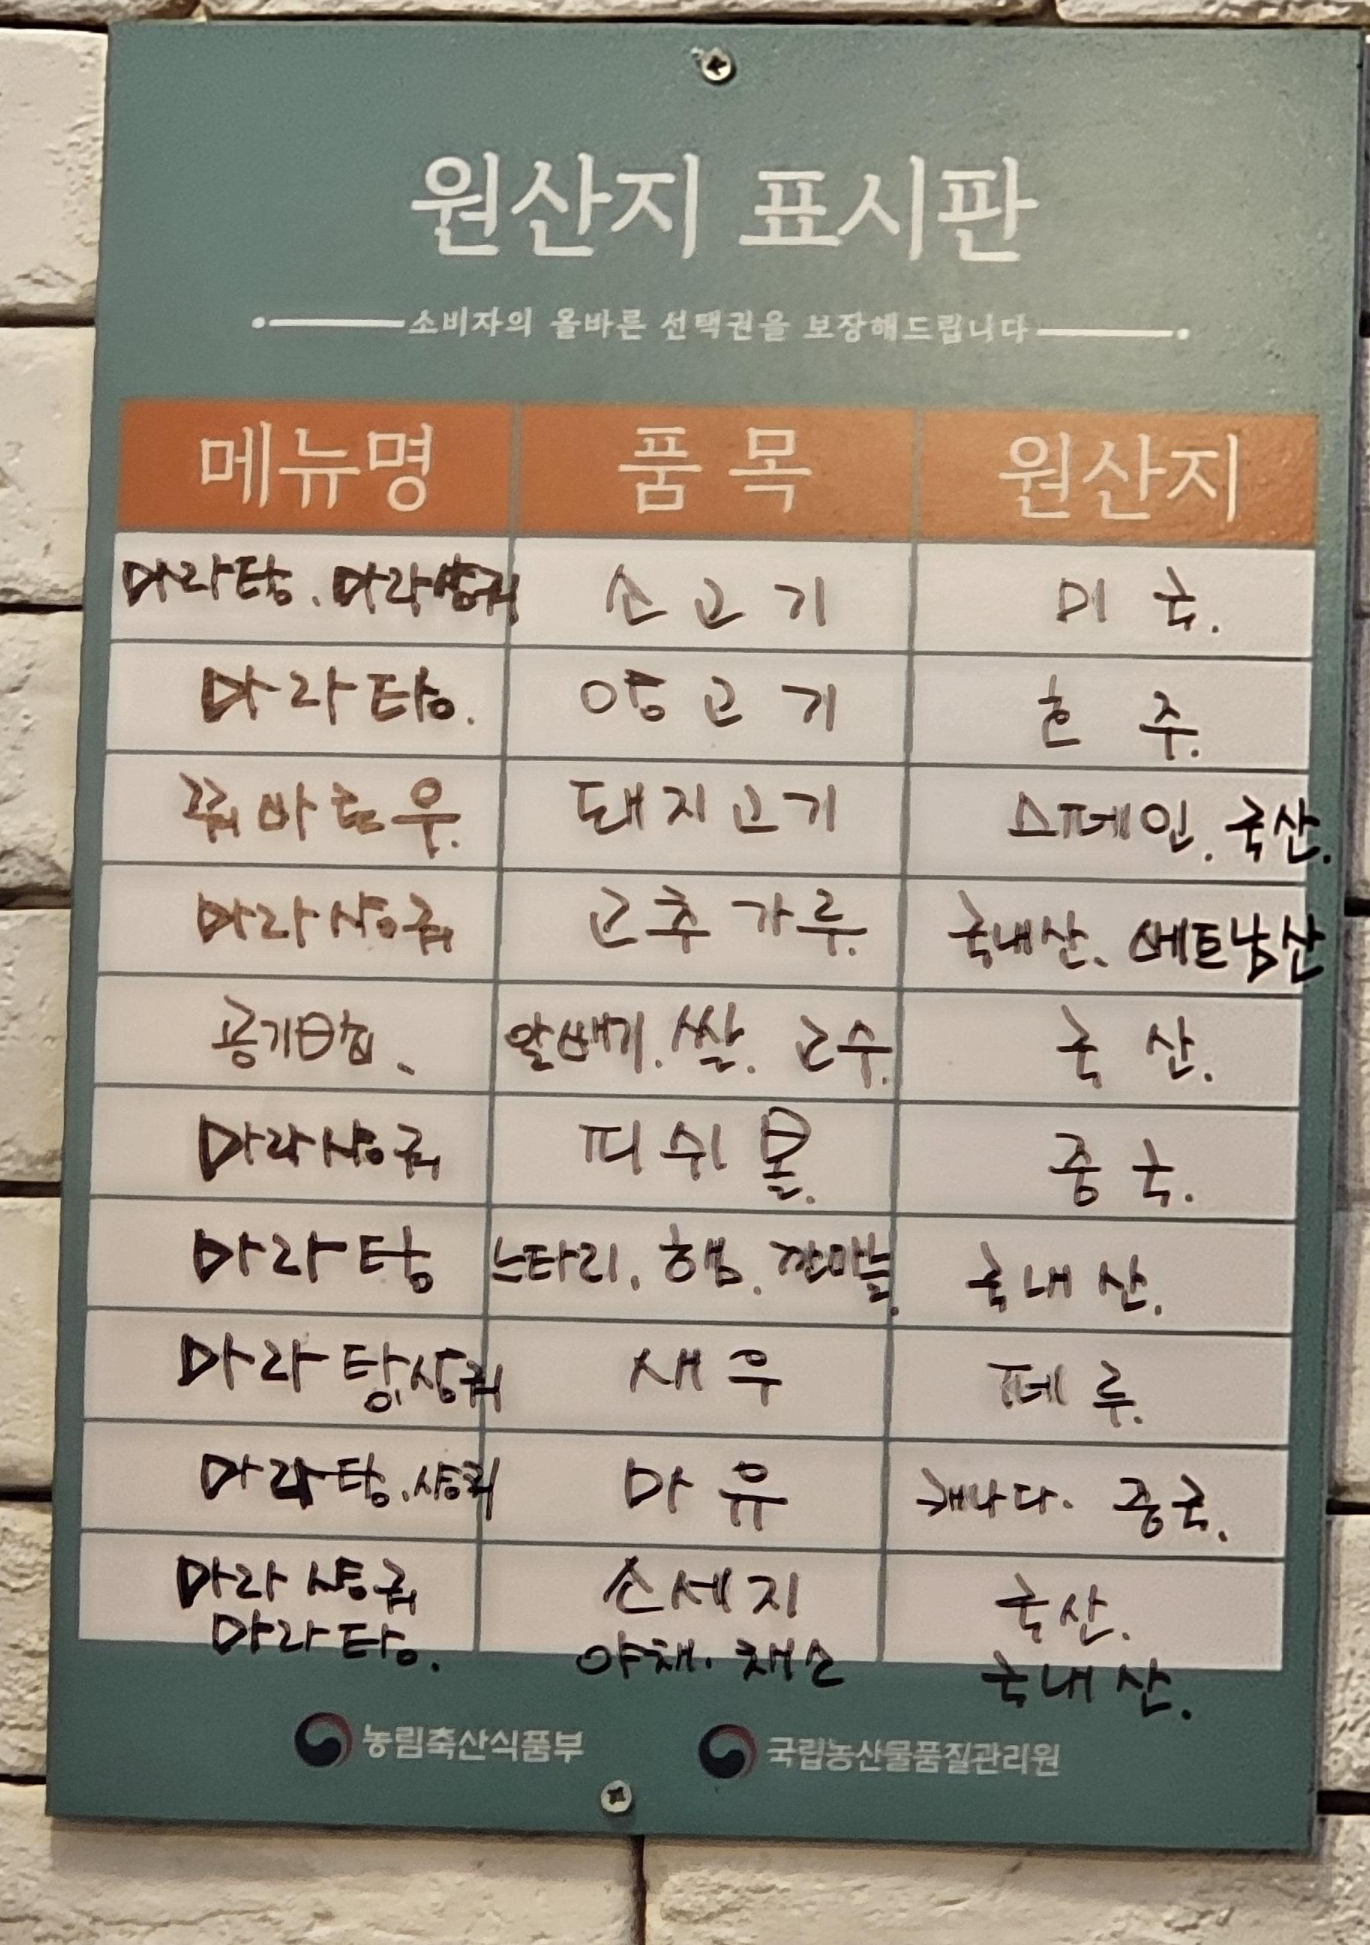 원산지 표시판
소비자의 올바른 선택권을 보장해드립니다
메뉴명 품목 원산지
마라탕. 마라샹궈 소고기 미국.
마라탕. 양고기 호주.
꿔바로우. 돼지고기 스페인. 국산.
마라샹궈 고추가루. 국내산. 베트남산
공기밥. 알배기. 쌀. 고수. 국산.
마라샹궈 피쉬볼. 중국.
마라탕 느타리. 햄. 깐마늘. 국내산.
마라탕.샹궈 새우 페루.
마라탕.샹궈 마유 캐나다. 중국.
마라샹궈 소세지 국산.
마라탕. 야채. 채소 국내산.
농림축산식품부 국립농산물품질관리원